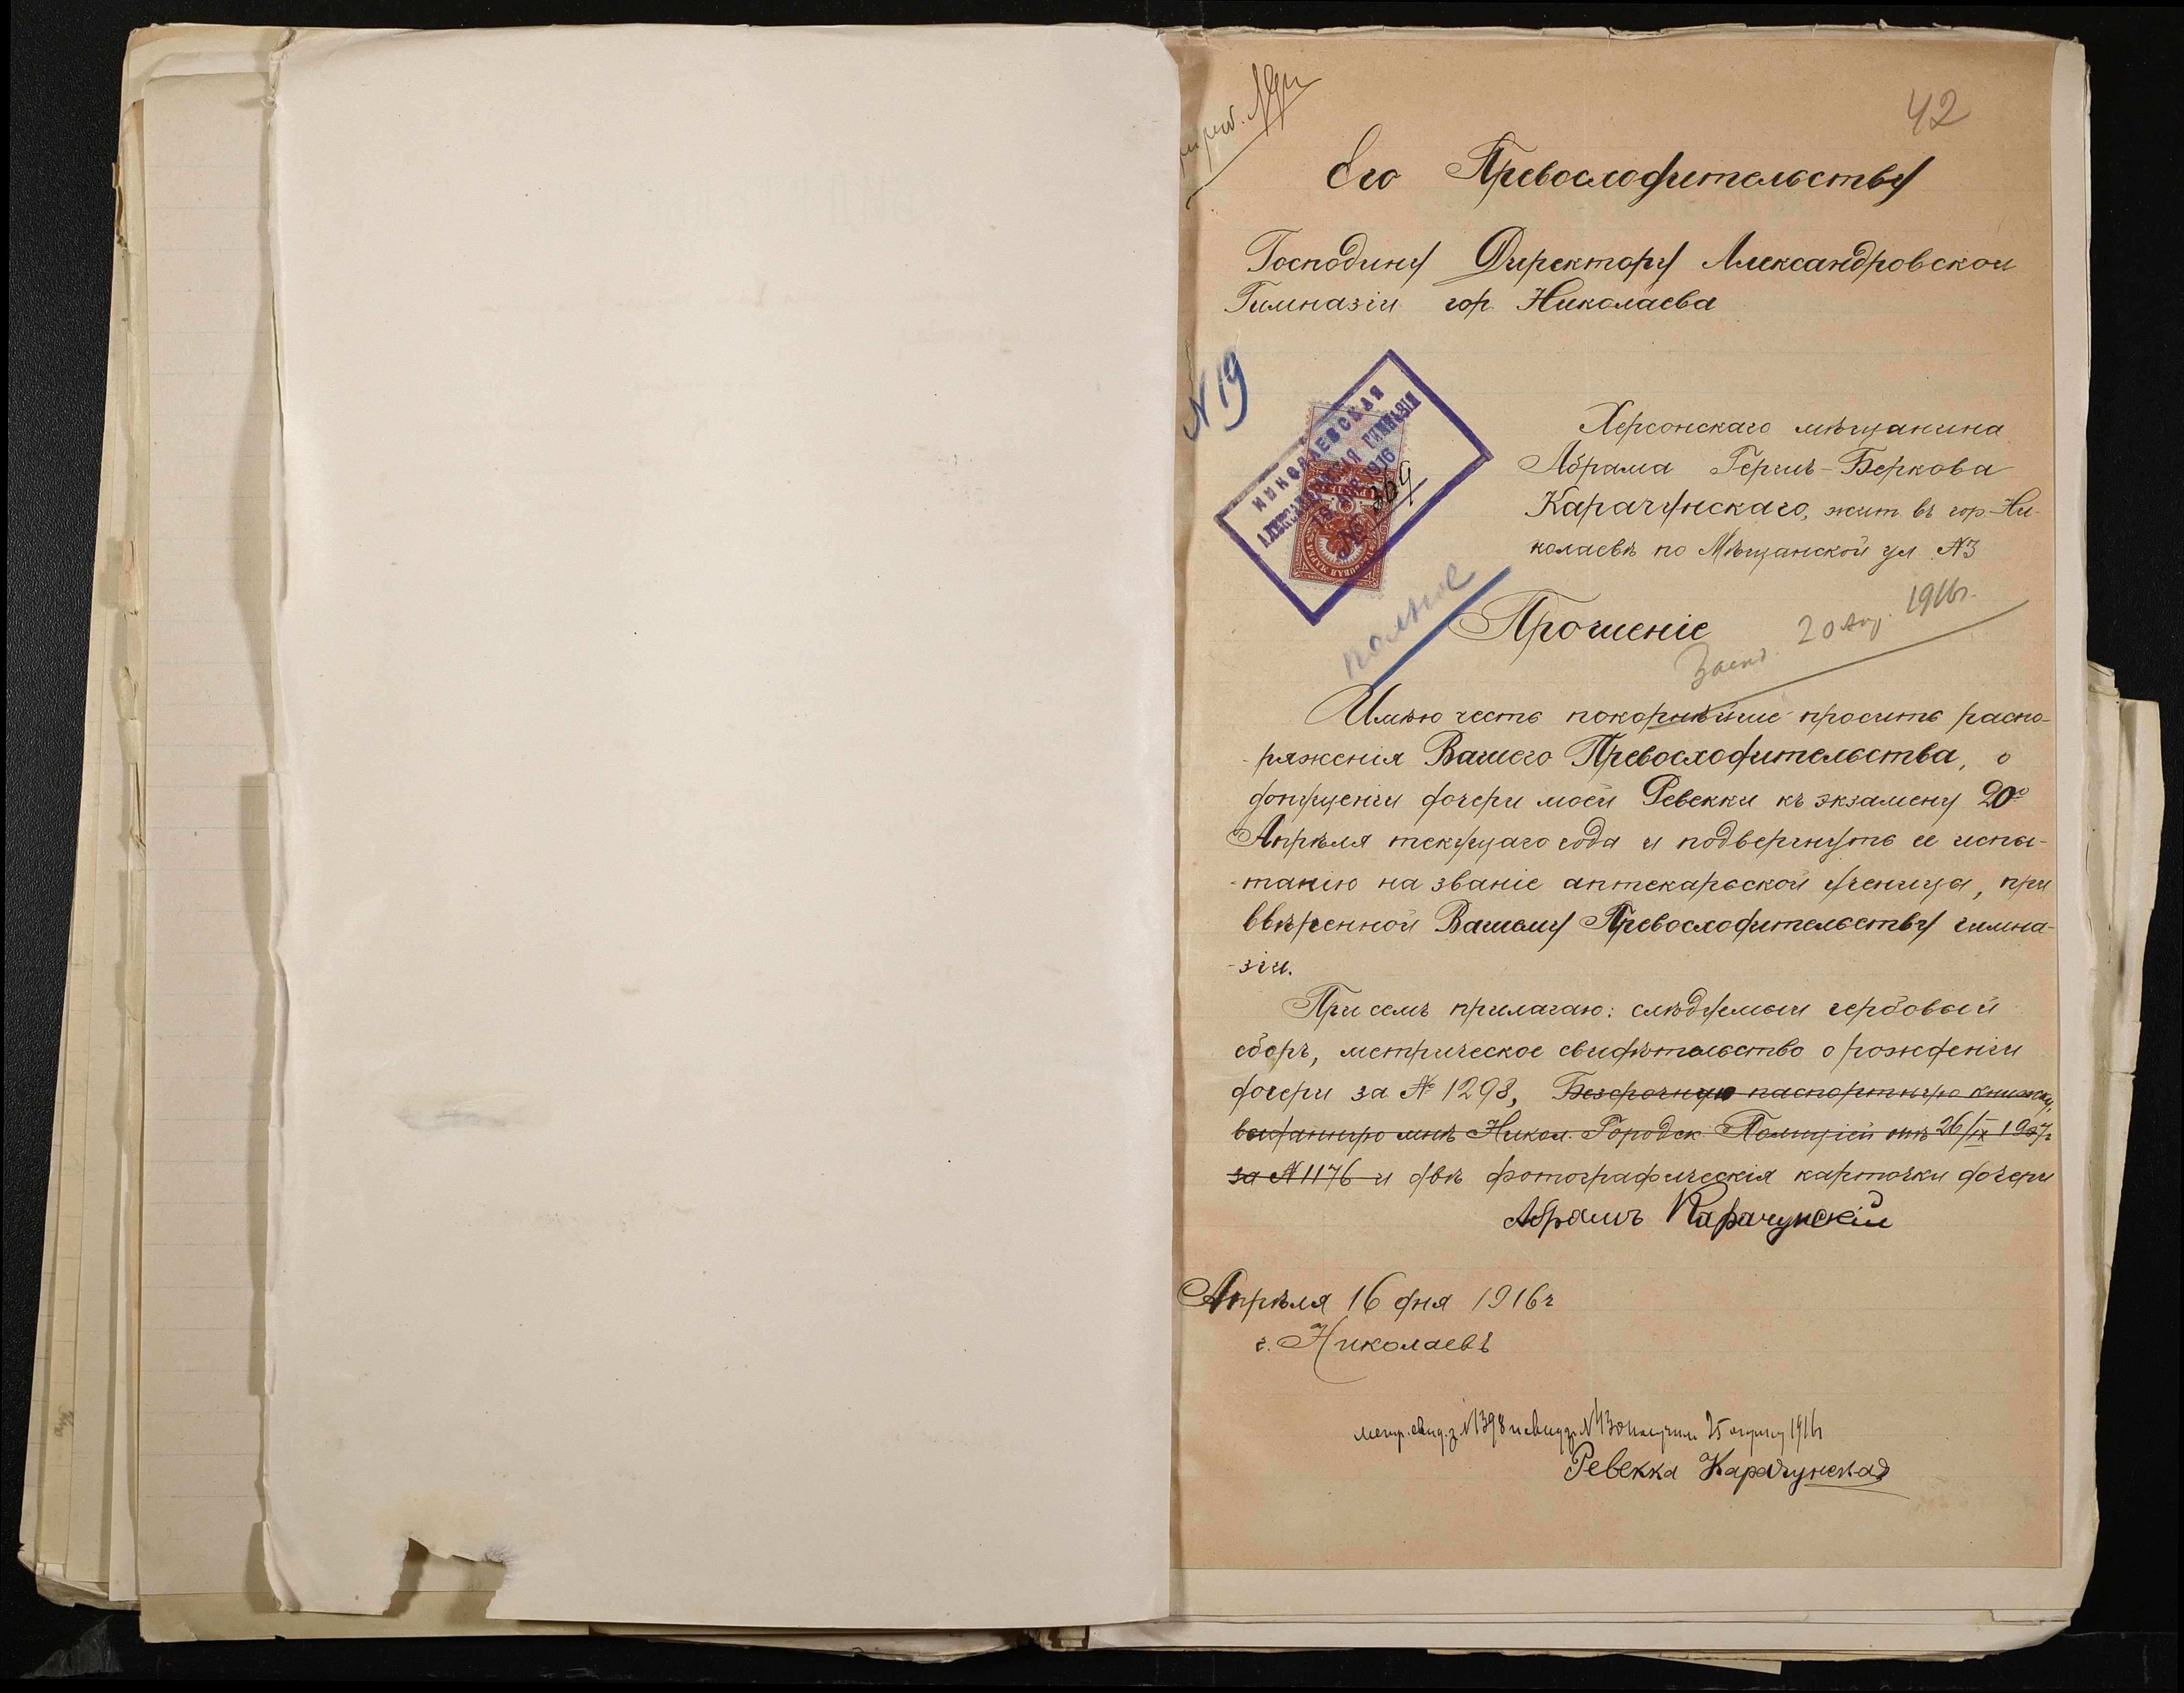 42
Его Превосходительству
Господину Директору Александровской
Гимназіи гор. Николаева
N 19
НИКОЛАЕВСКАЯ
АЛЕКСАНДРОВСКАЯ ГИМНАЗІЯ
1916
№ 369
Херсонскаго мѣщанина
Абрама Гершъ-Беркова
Карачунскаго, жит. въ гор. Ни-
колаевѣ по Мѣщанской ул. N3
полное
Прошеніе
20 Апр. 1916г.
Имѣю честь покорнѣйше просить распо-
-ряженія Вашего Превосходительства, о
допущеніи дочери моей Ревекки къ экзамену 20го
Апрѣля текущаго года и подвергнуть ее испы-
-танію на званіе аптекарской ученицы, при
ввѣренной Вашему Превосходительству гимна-
-зіи.
При семъ прилагаю: слѣдуемый гербовый
сборъ, метрическое свидѣтельство о рожденіи
дочери за № 1298, Безсрочную паспортную книжку,
выданную мнѣ Никол. Городск. Полиціей отъ 26/IX 1907г.
за N 1176 и двѣ фотографическія карточки дочери
Абрамъ Карачунскій
Апрѣля 16 дня 1916г
г. Николаевъ
метр. свид. з. N 1398 и свид. N 430 получил 25 1916г
Ревекка Карачунская